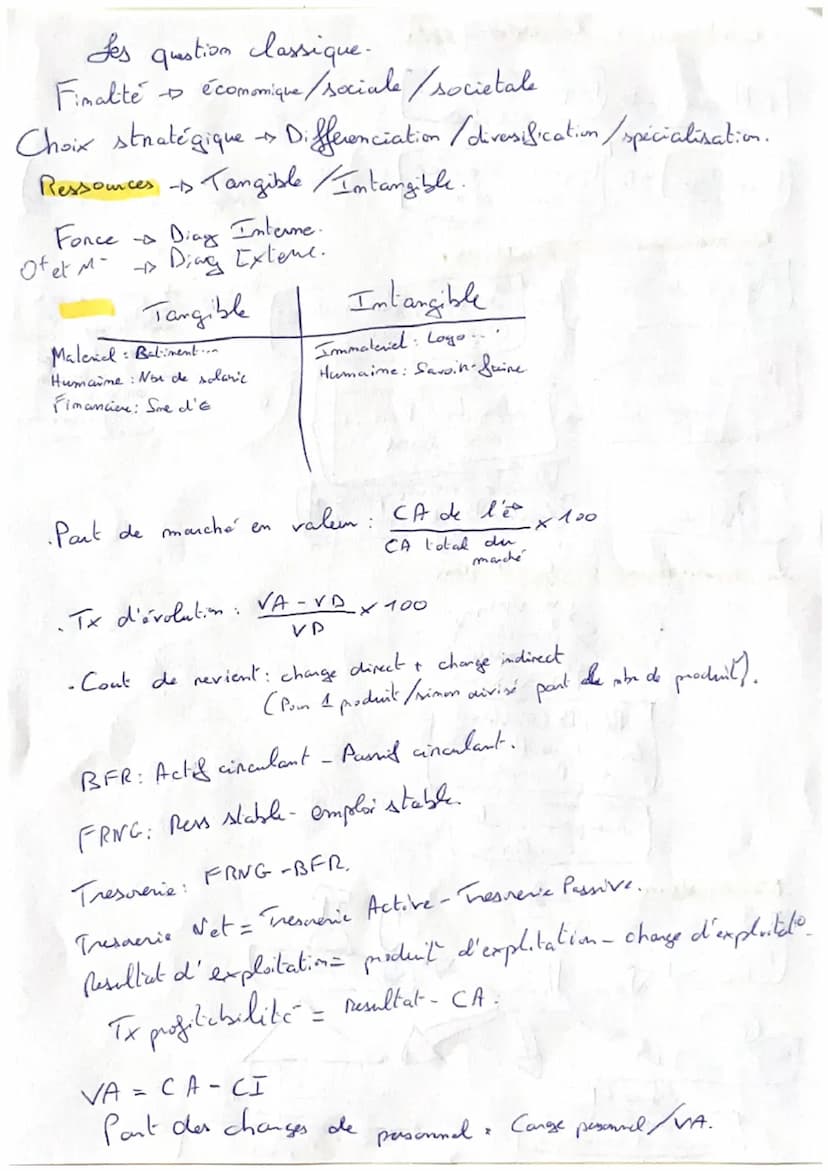 Les question classique.
Finalité → économique/sociale/societale
Choix stratégique → Differenciation/diversification/spécialisation.
Ressources → Tangible/Intangible.
Force → Diag Interne.
O+ et M- → Diag Externe.
Tangible | Intangible
Materiel : Batiment... | Immateriel : Logo...
Humaine : Nbr de salarié | Humaine : Savoir-faire
Financière : Sme d'€
. Part de marché en valeur : CA de l'e° / CA total du marché × 100
. Tx d'évolution : VA - VD / VD × 100
. Cout de revient : charge direct + charge indirect
(Pour 1 produit/sinon divisé part le nbr de produit).
BFR : Actif circulant - Passif circulant.
FRNG : Ress stable - emploi stable.
Tresorerie : FRNG - BFR.
Tresorerie Net = Tresorerie Active - Tresorerie Passive.
Resultat d'exploitation = produit d'explitation - charge d'exploitat°.
Tx profitabilité = resultat - CA.
VA = CA - CI
Part des charges de personnel = Carge personnel/VA.